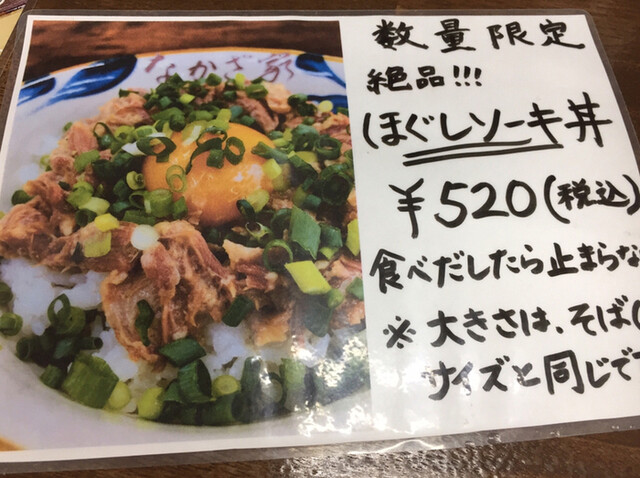 なかざ家
数量限定
絶品!!!
ほぐしソーキ丼
¥520(税込)
食べだしたら止まらな
※大きさは、そば(
サイズと同じで